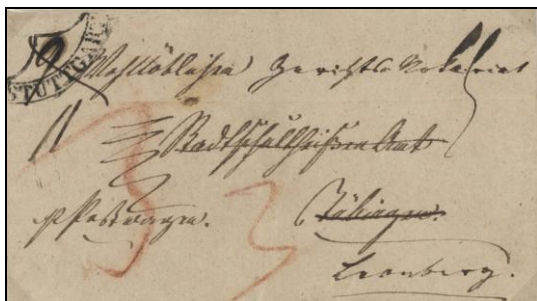 STUTTGART
Wohllöblichen Gerichts Notariat
Stadtschultheißen Amt
p Postwagen.
Leonberg.